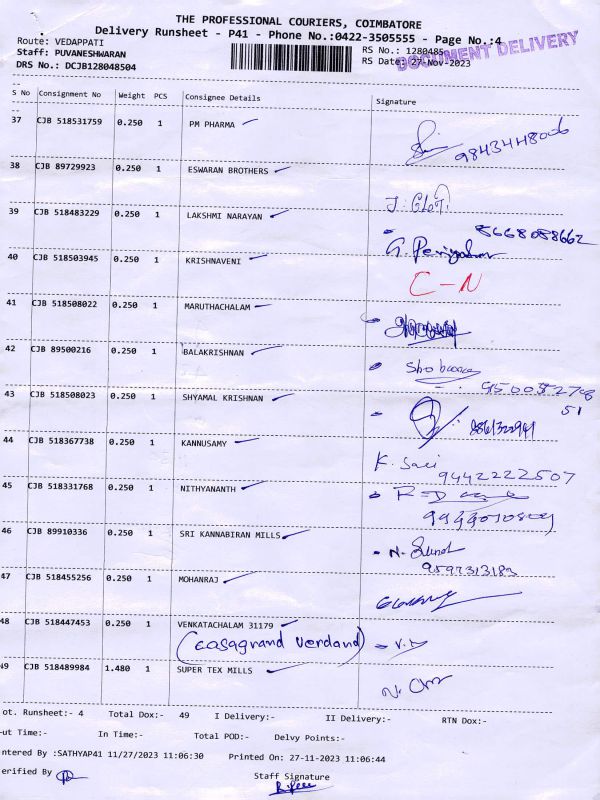 THE PROFESSIONAL COURIERS, COIMBATORE
Delivery Runsheet - P41 - Phone No.:0422-3505555 - Page No.:4
Route: VEDAPPATI RS No.: 1280485
DOCUMENT DELIVERY
Staff: PUVANESHWARAN RS Date: 27-Nov-2023
DRS No.: DCJB128048504
S No Consignment No Weight PCS Consignee Details Signature
37 CJB 518531759 0.250 1 PM PHARMA
9843448006
38 CJB 89729923 0.250 1 ESWARAN BROTHERS
39 CJB 518483229 0.250 1 LAKSHMI NARAYAN
8668088662
40 CJB 518503945 0.250 1 KRISHNAVENI
C-N
41 CJB 518508022 0.250 1 MARUTHACHALAM
42 CJB 89500216 0.250 1 BALAKRISHNAN
43 CJB 518508023 0.250 1 SHYAMAL KRISHNAN
51
44 CJB 518367738 0.250 1 KANNUSAMY
K. Sai
9442222507
45 CJB 518331768 0.250 1 NITHYANANTH
46 CJB 89910336 0.250 1 SRI KANNABIRAN MILLS
9597313183
47 CJB 518455256 0.250 1 MOHANRAJ
48 CJB 518447453 0.250 1 VENKATACHALAM 31179
(casagrand Verdand) - V.M
49 CJB 518489984 1.480 1 SUPER TEX MILLS
ot. Runsheet:- 4 Total Dox:- 49 I Delivery:- II Delivery:- RTN Dox:-
ut Time:- In Time:- Total POD:- Delvy Points:-
ntered By :SATHYAP41 11/27/2023 11:06:30 Printed On: 27-11-2023 11:06:44
erified By Staff Signature